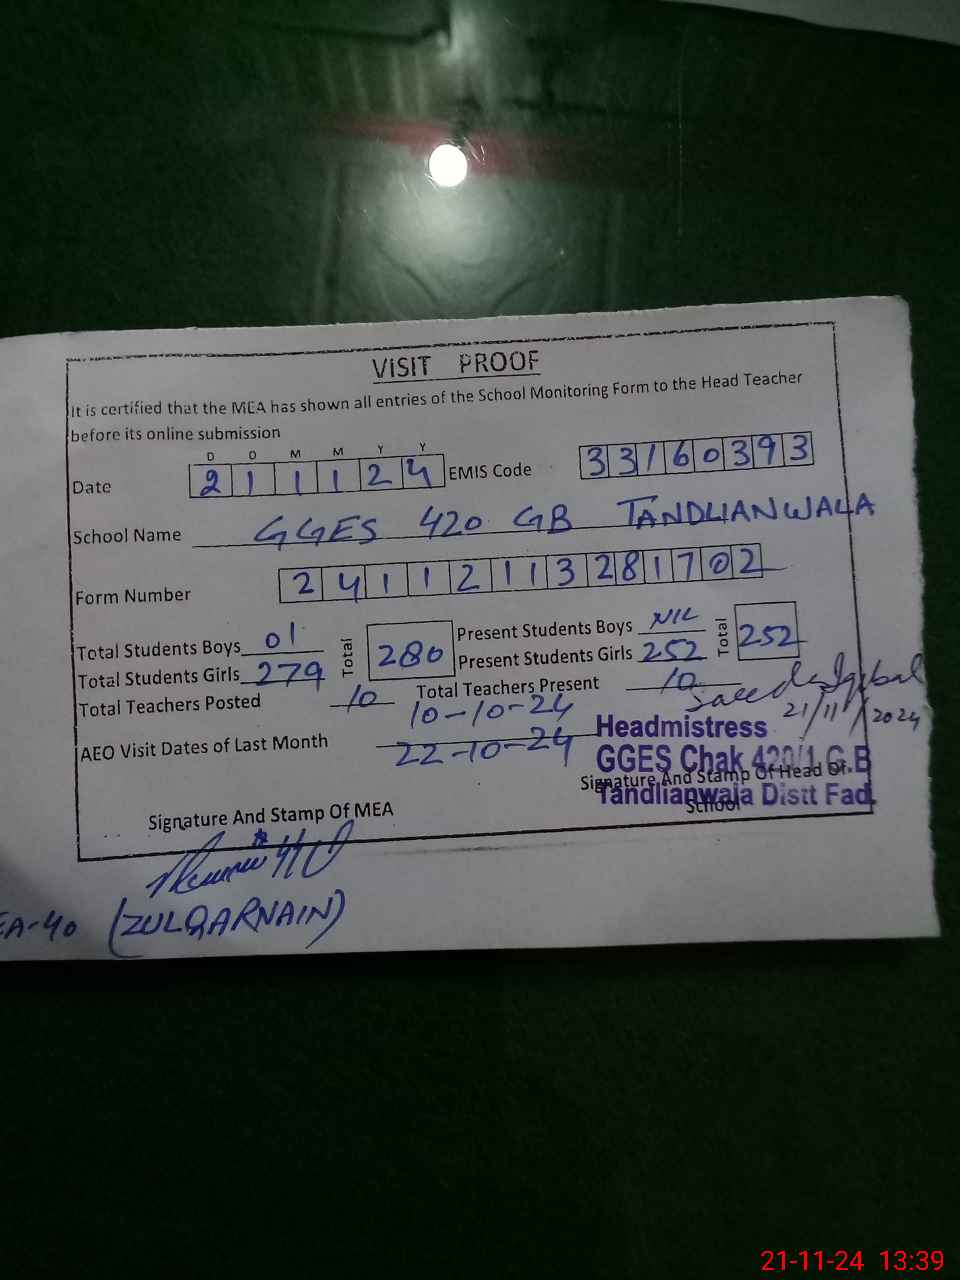 VISIT PROOF
It is certified that the MEA has shown all entries of the School Monitoring Form to the Head Teacher
before its online submission
D D M M Y Y
Date 2 1 1 1 2 4 EMIS Code 3 3 1 6 0 3 9 3
School Name GGES 420 GB TANDLIANWALA
Form Number 2 4 1 1 2 1 1 3 2 8 1 7 0 2
Total Students Boys 01 Total 280 Present Students Boys NIL Total 252
Total Students Girls 279 Present Students Girls 252
Total Teachers Posted 10 Total Teachers Present 10
AEO Visit Dates of Last Month 10-10-24
22-10-24
Saeeda Iqbal
21/11/2024
Headmistress
GGES Chak 420/1 G.B
Tandlianwala Distt Fad.
Signature And Stamp Of Head Of
School
Signature And Stamp Of MEA
EA-40 (ZULQARNAIN)
21-11-24 13:39